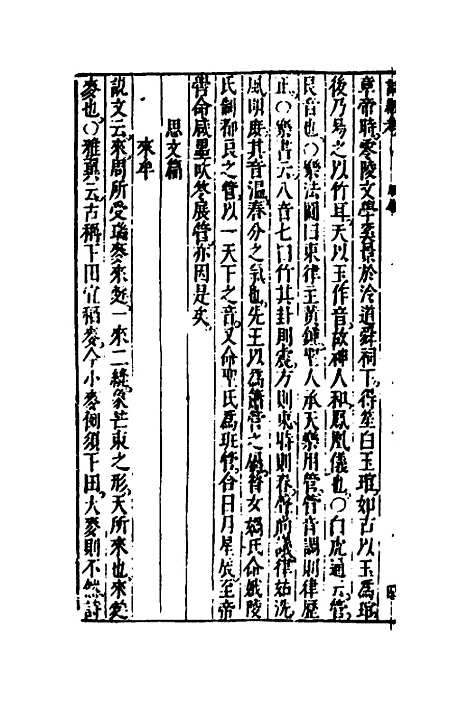 章帝時零陵文學奚景於泠道舜祠下得笙白玉琯知古以玉爲琯
後乃易之以竹耳夫以玉作音故神人和鳳凰儀也〇白虎通云管
艮音也〇樂法圖曰東律主黃鍾聖人承天樂用管管音調則律歷
正〇樂書云八音七曰竹其卦則震方則東時則春聲尚議律姑洗
風明庶其音溫春分之氣也先王以爲簫管之屬昔女媧氏命娥陵
氏制都良之管以一天下之音又命聖氏爲班管合日月星辰至帝
嚳命咸墨吹苓展管亦因是矣
思文篇
來牟
說文云來周所受瑞麥來麰一來二縫象芒朿之形天所來也來麰
麥也〇雅翼云古稱下田宜稻麥今小麥例須下田大麥則不然詩